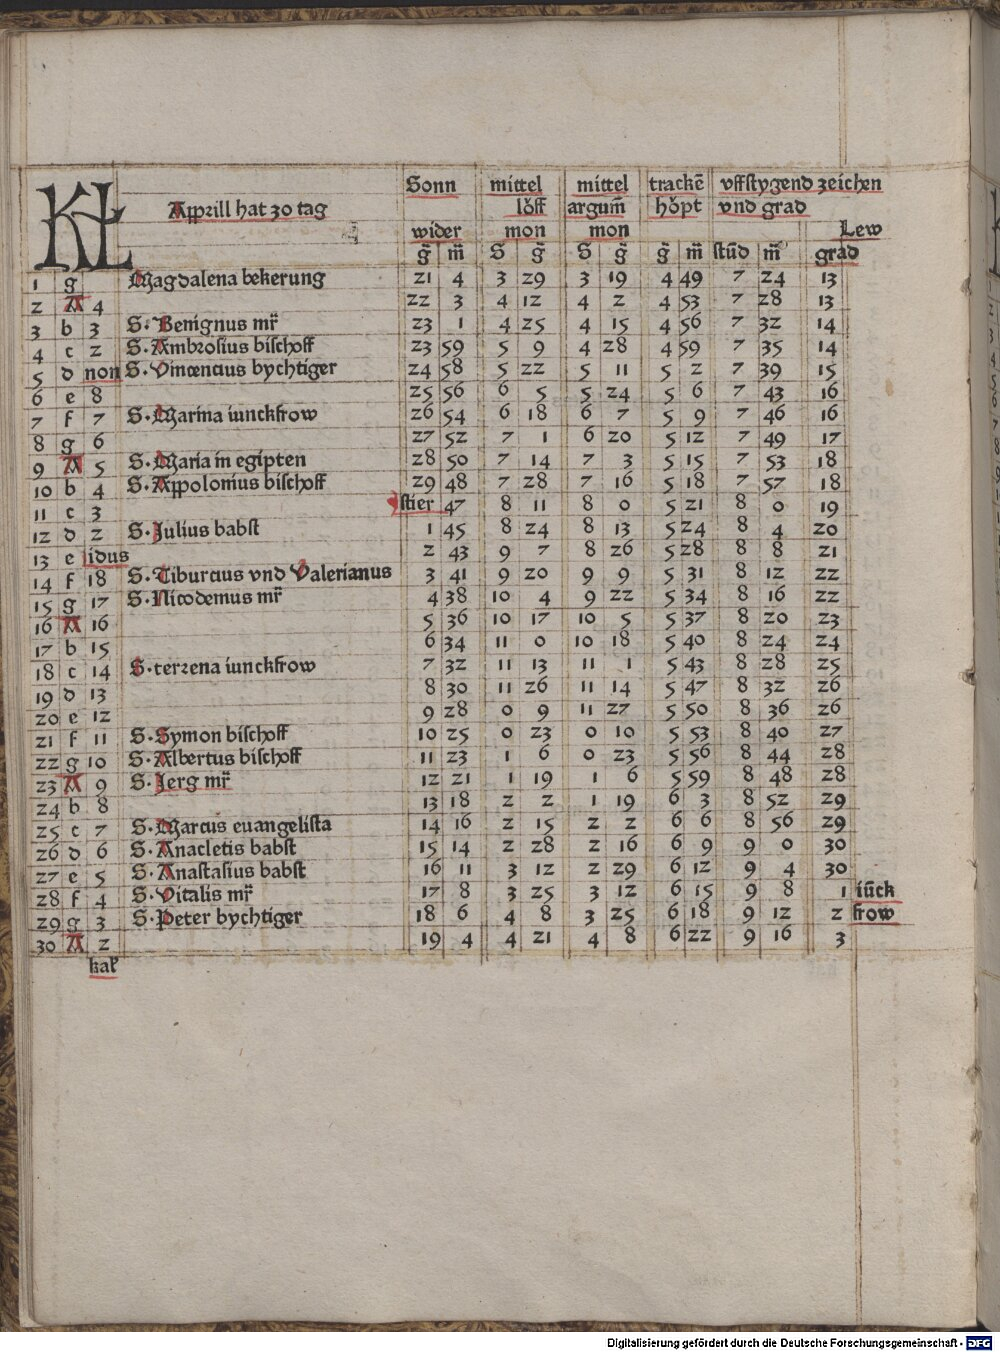 KL Apprill hat 30 tag
Sonn mittel mittel trackē vffstygend zeichen
löff argum̄ höpt vnd grad
wider mon mon Lew
g̃ m̃ S g̃ S g̃ g̃ m̃ stūd m̃ grad
1 g Magdalena bekerung 21 4 3 29 3 19 4 49 7 24 13
2 A 4 22 3 4 12 4 2 4 53 7 28 13
3 b 3 S. Benignus mr̃ 23 1 4 25 4 15 4 56 7 32 14
4 c 2 S. Ambrosius bischoff 23 59 5 9 4 28 4 59 7 35 14
5 d non S. Vincencius bychtiger 24 58 5 22 5 11 5 2 7 39 15
6 e 8 25 56 6 5 5 24 5 6 7 43 16
7 f 7 S. Marina iunckfrow 26 54 6 18 6 7 5 9 7 46 16
8 g 6 27 52 7 1 6 20 5 12 7 49 17
9 A 5 S. Maria in egipten 28 50 7 14 7 3 5 15 7 53 18
10 b 4 S. Appolonius bischoff 29 48 7 28 7 16 5 18 7 57 18
11 c 3 stier 47 8 11 8 0 5 21 8 0 19
12 d 2 S. Julius babst 1 45 8 24 8 13 5 24 8 4 20
13 e idus 2 43 9 7 8 26 5 28 8 8 21
14 f 18 S. Tiburcius vnd Valerianus 3 41 9 20 9 9 5 31 8 12 22
15 g 17 S. Nicodemus mr̃ 4 38 10 4 9 22 5 34 8 16 22
16 A 16 5 36 10 17 10 5 5 37 8 20 23
17 b 15 6 34 11 0 10 18 5 40 8 24 24
18 c 14 S. terrena iunckfrow 7 32 11 13 11 1 5 43 8 28 25
19 d 13 8 30 11 26 11 14 5 47 8 32 26
20 e 12 9 28 0 9 11 27 5 50 8 36 26
21 f 11 S. Symon bischoff 10 25 0 23 0 10 5 53 8 40 27
22 g 10 S. Albertus bischoff 11 23 1 6 0 23 5 56 8 44 28
23 A 9 S. Jerg mr̃ 12 21 1 19 1 6 5 59 8 48 28
24 b 8 13 18 2 2 1 19 6 3 8 52 29
25 c 7 S. Marcus euangelista 14 16 2 15 2 2 6 6 8 56 29
26 d 6 S. Anacletis babst 15 14 2 28 2 16 6 9 9 0 30
27 e 5 S. Anastasius babst 16 11 3 12 2 29 6 12 9 4 30
28 f 4 S. Vitalis mr̃ 17 8 3 25 3 12 6 15 9 8 1 iūck
29 g 3 S. Peter bychtiger 18 6 4 8 3 25 6 18 9 12 2 frow
30 A 2 19 4 4 21 4 8 6 22 9 16 3
kal̃
Digitalisierung gefördert durch die Deutsche Forschungsgemeinschaft - DFG